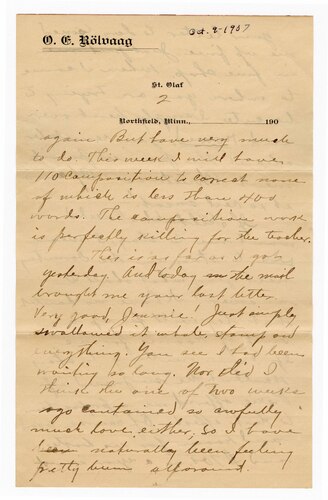 Oct. 2-1907
O. E. Rölvaag
St. Olaf
2
Northfield, Minn., 190
again. But have very much
to do. This week I will have
110 composition to correct none
of which is less than 400
words. The composition work
is perfectly killing for the teacher.
This is as far as I got
yesterday. And today the mail
brought me your last letter.
Very good, Jennie! Just simply
swallowed it whole, stamp and
everything. You see I had been
waiting so long. Nor did I
think the one of two weeks
ago contained so awfully
much love, either, so I have
naturally been feeling
pretty bum all around.